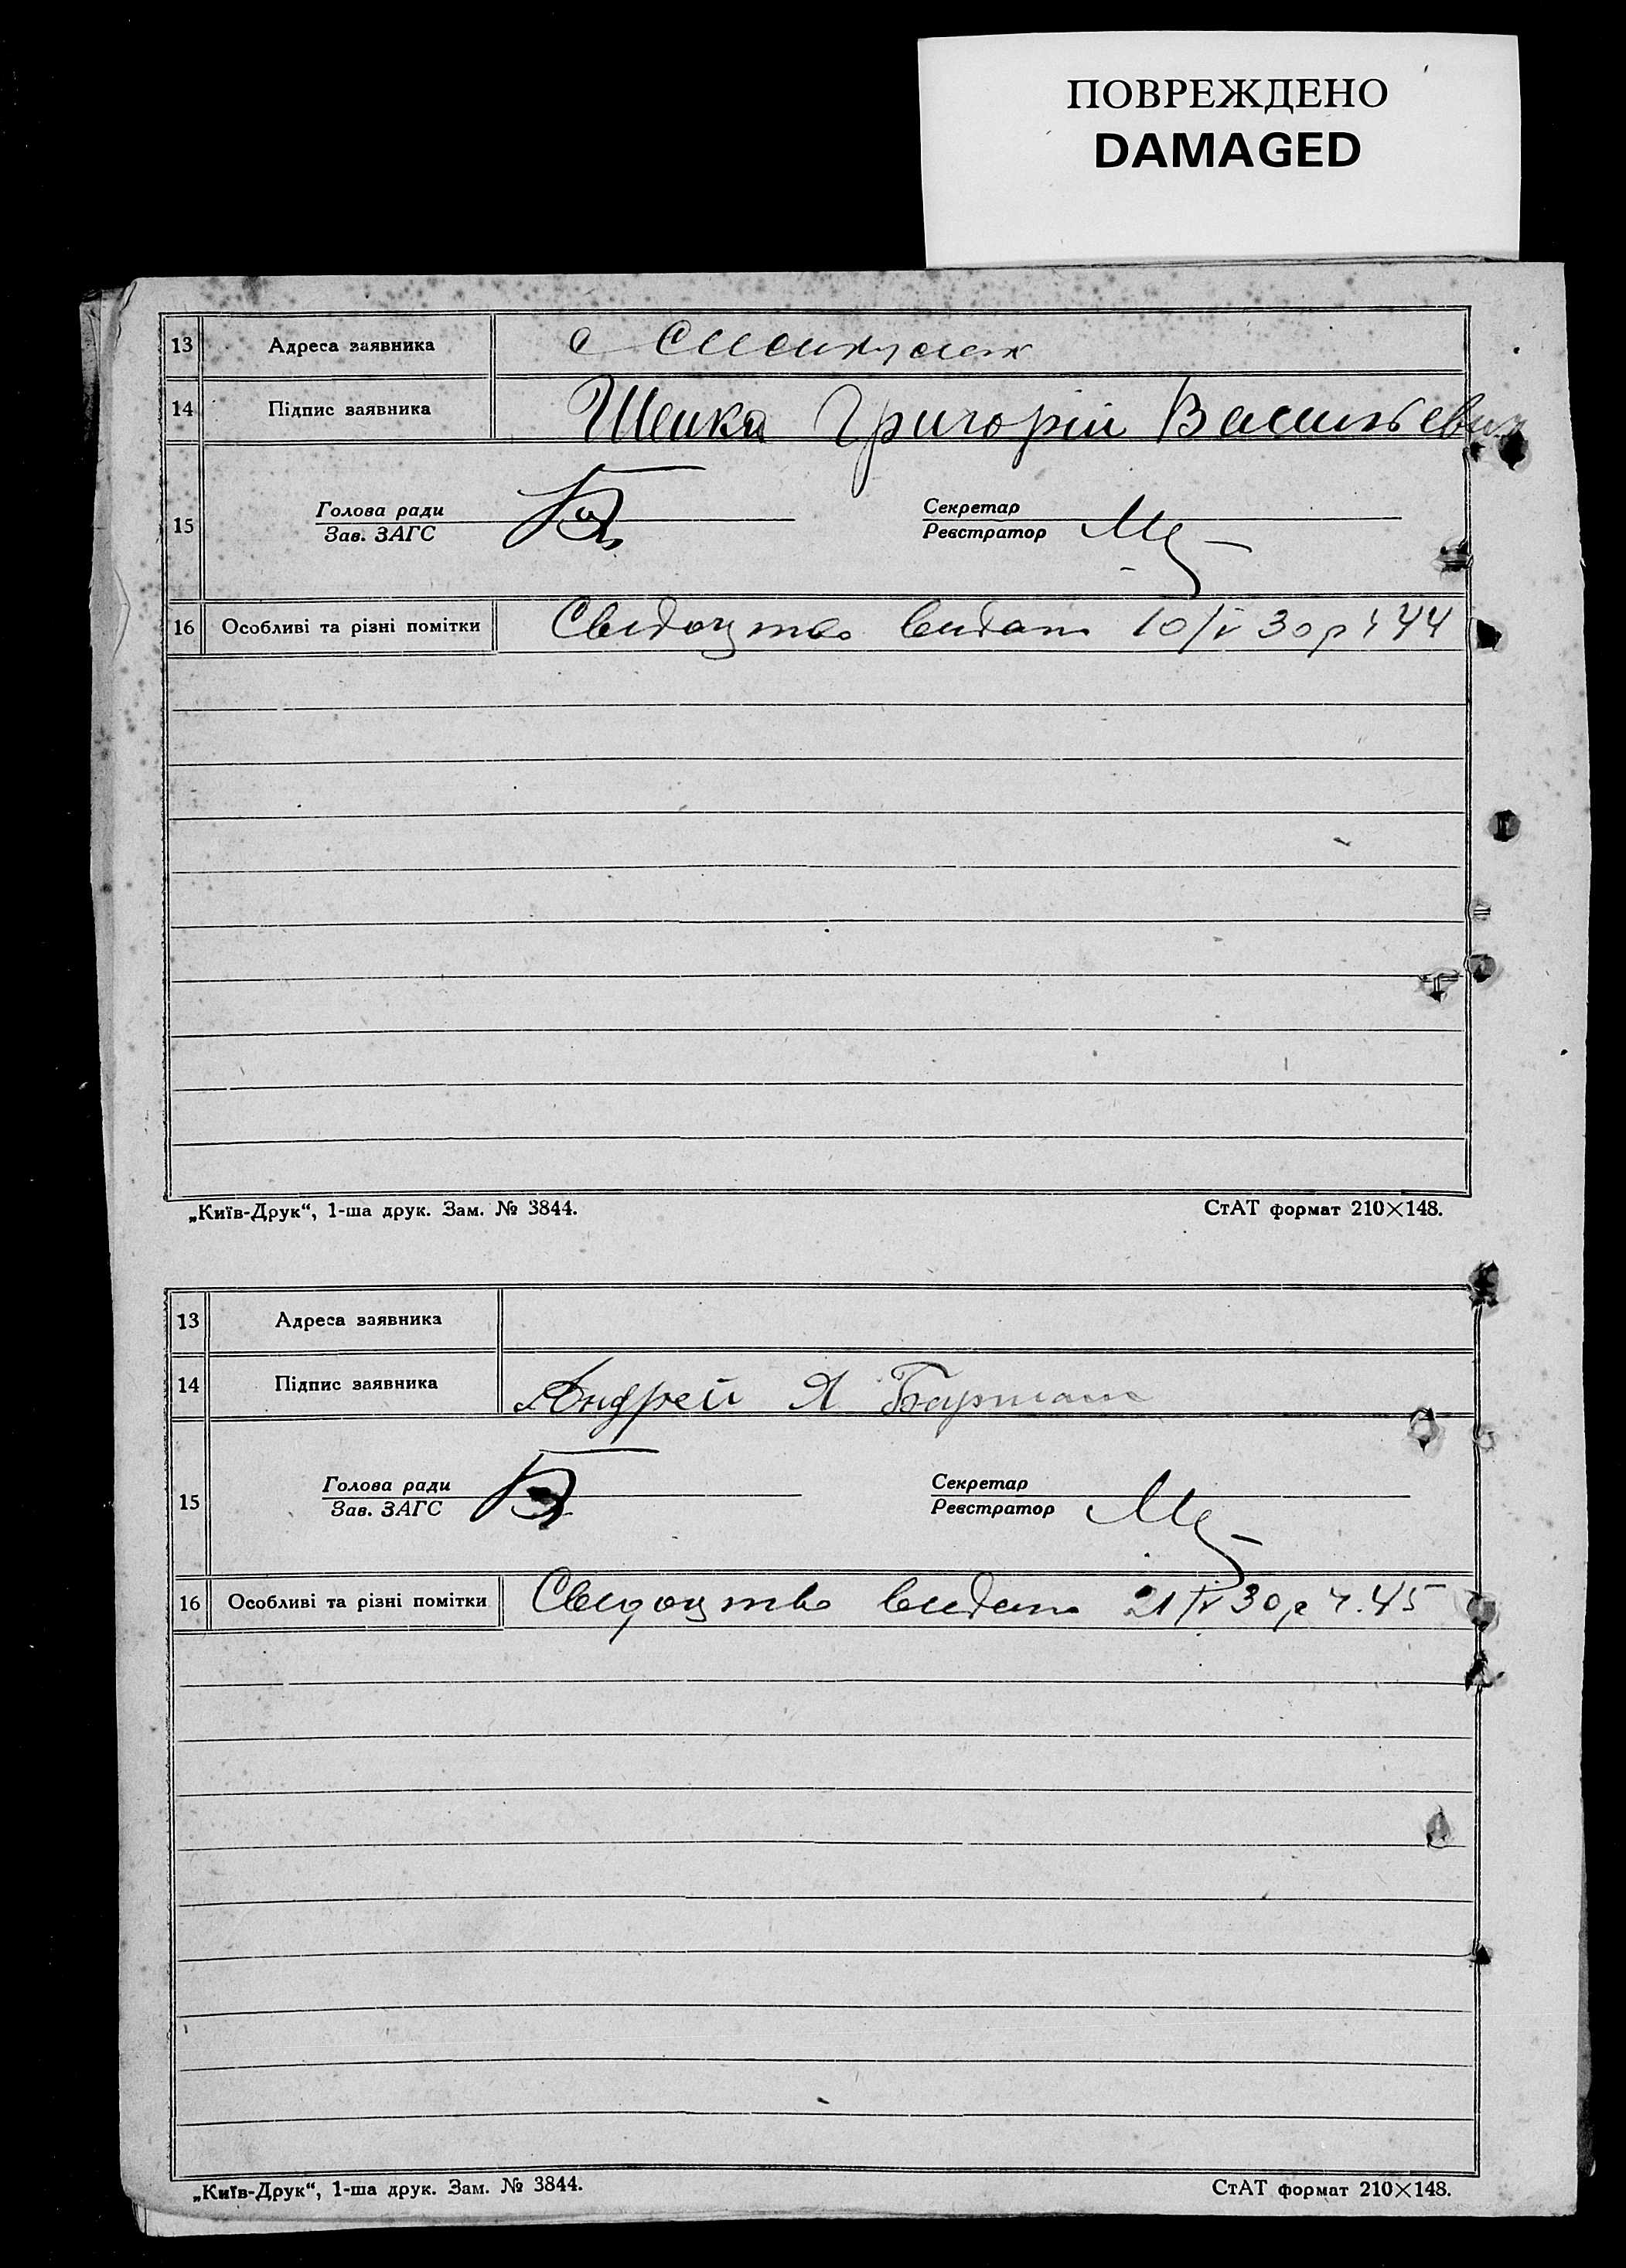 ПОВРЕЖДЕНО
DAMAGED
13 Адреса заявника с
14 Підпис заявника Шейка Григорій Васильевич
Голова ради Секретар
15
Зав. ЗАГС Реєстратор
16 Особливі та різні помітки Свидоцтво видано 10/IV 30 р ч 44
„Київ-Друк“, 1-ша друк. Зам. № 3844. СтАТ формат 210×148.
13 Адреса заявника
14 Підпис заявника Андрей Я
Голова ради Секретар
15
Зав. ЗАГС Реєстратор
16 Особливі та різні помітки Свидоцтво видано 21/IV 30 р ч. 45
„Київ-Друк“, 1-ша друк. Зам. № 3844. СтАТ формат 210×148.